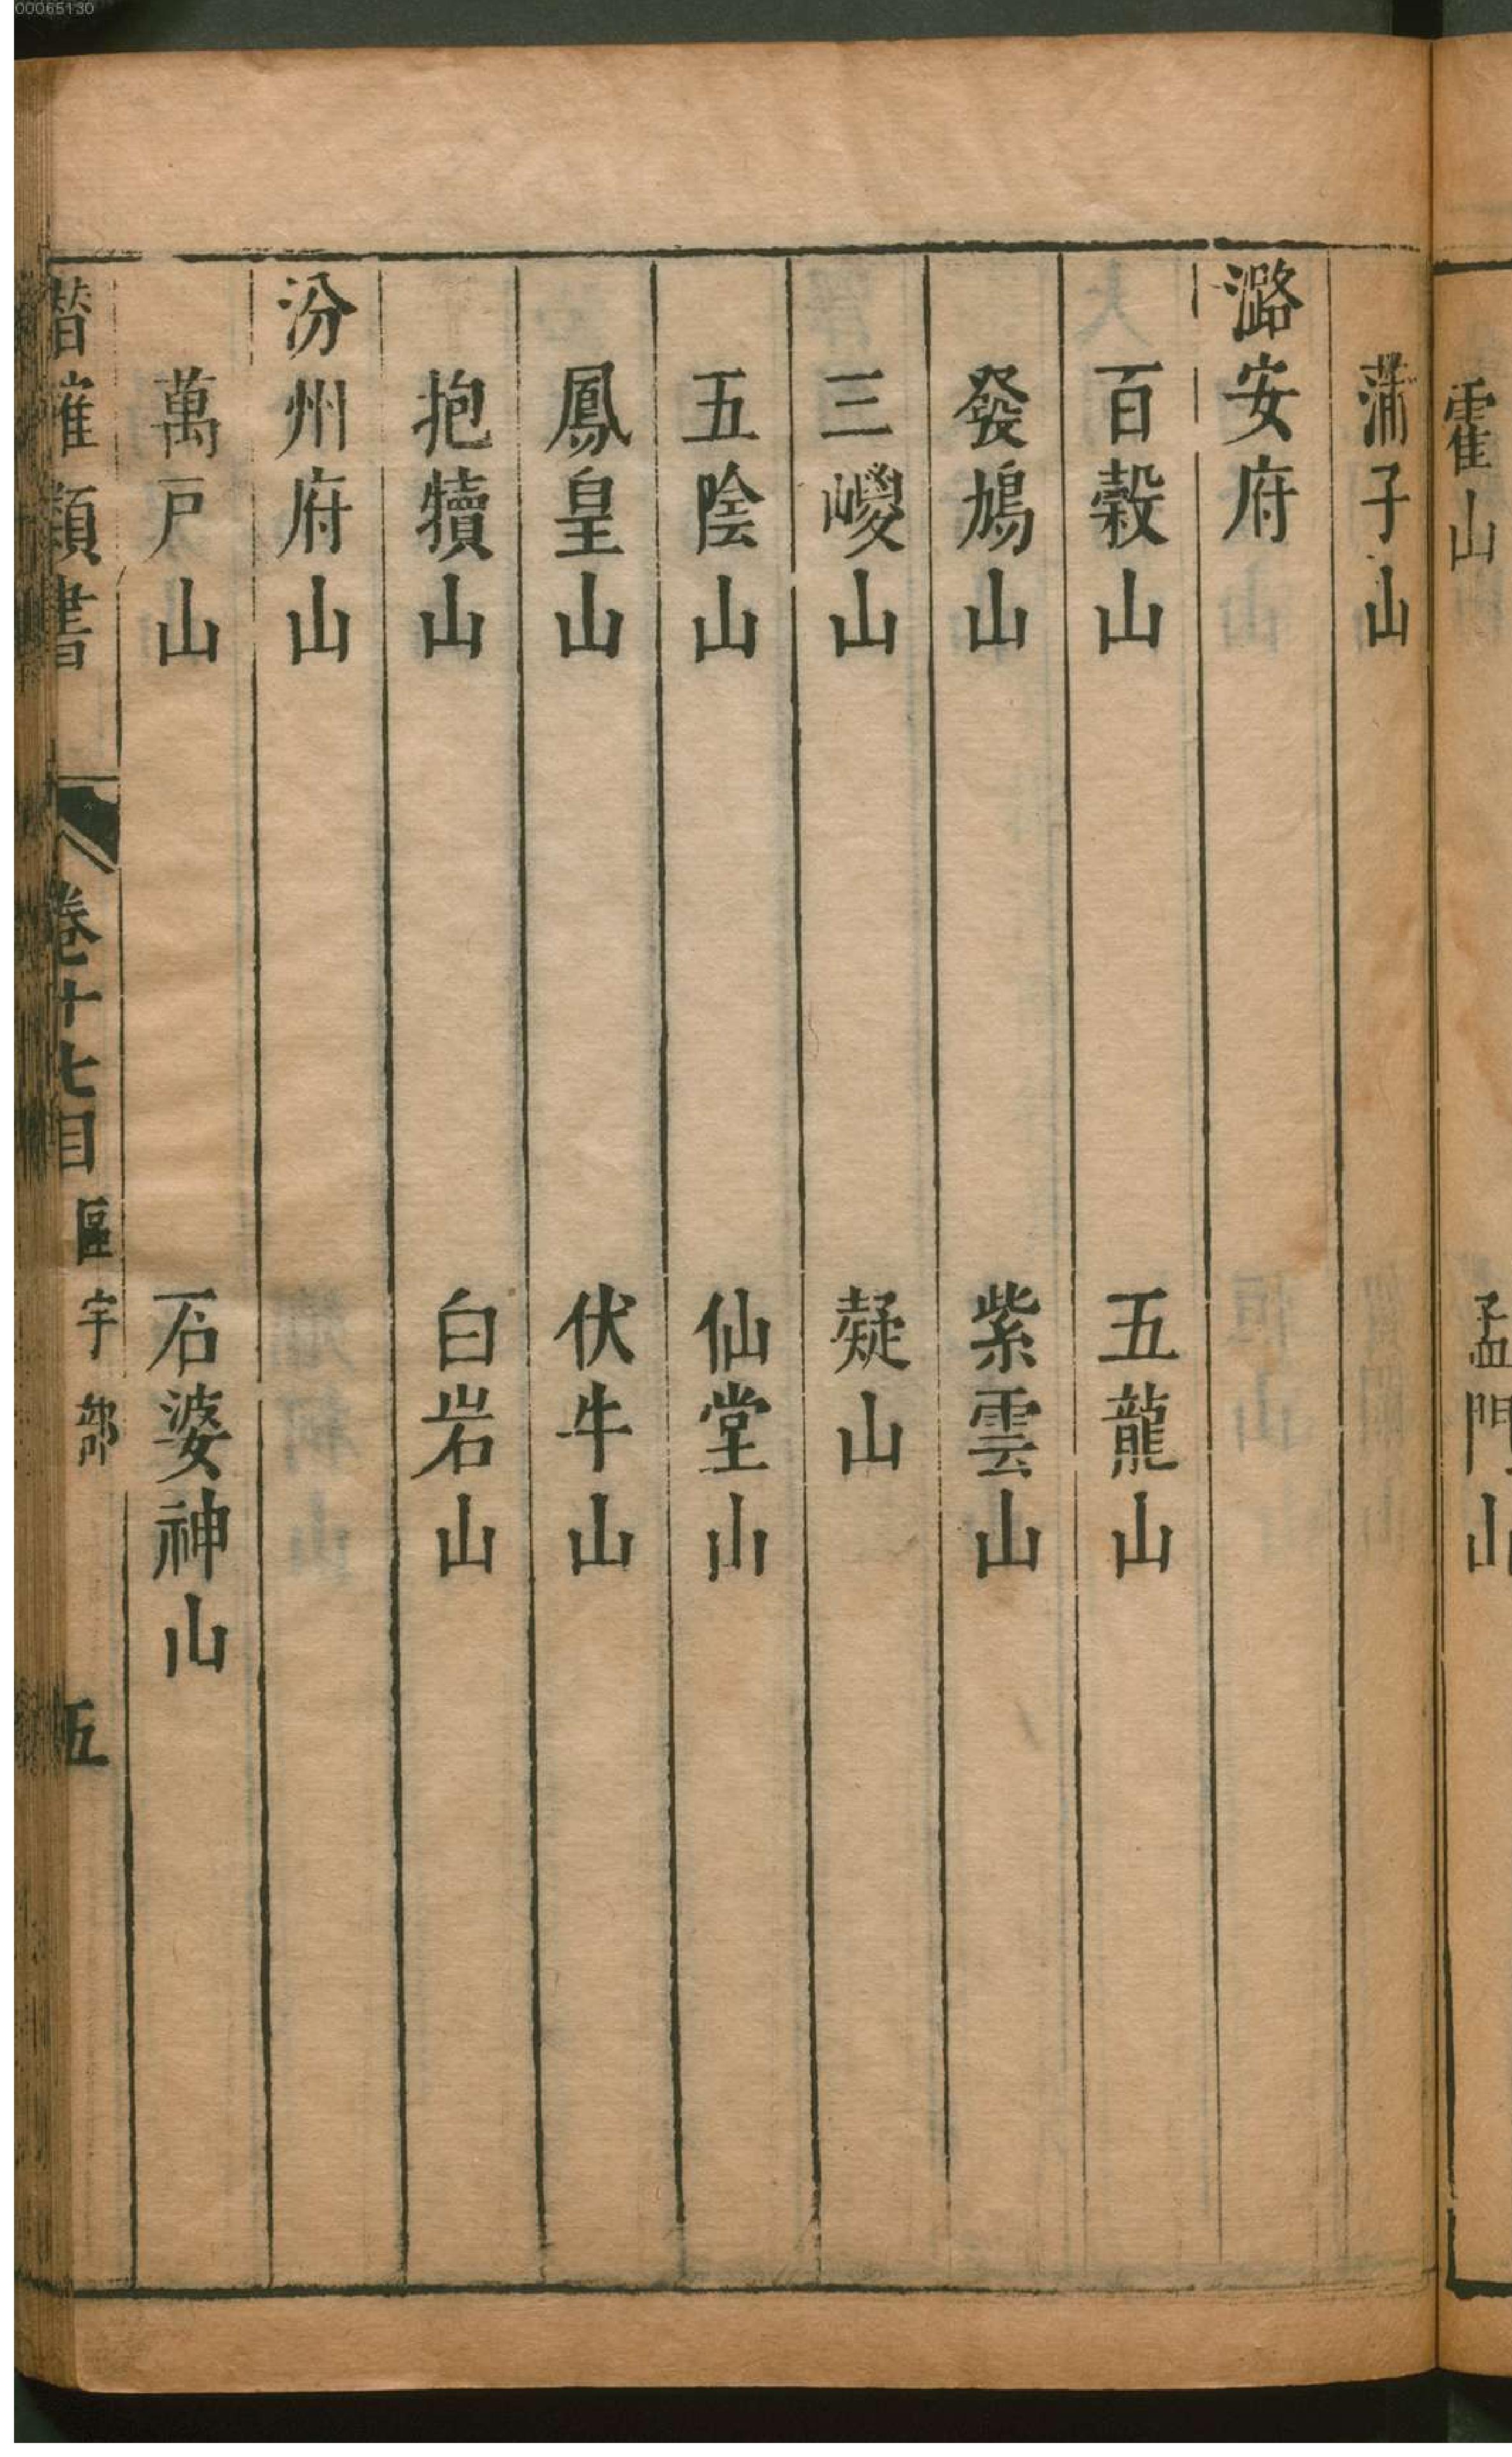 00065130
霍山　孟門山
蒲子山
潞安府
百穀山　五龍山
發鳩山　紫雲山
三嵕山　嶷山
五陰山　仙堂山
鳳皇山　伏牛山
抱犢山　白岩山
汾州府山
萬戸山　石婆神山
潛確類書　卷十七目　區宇部　五